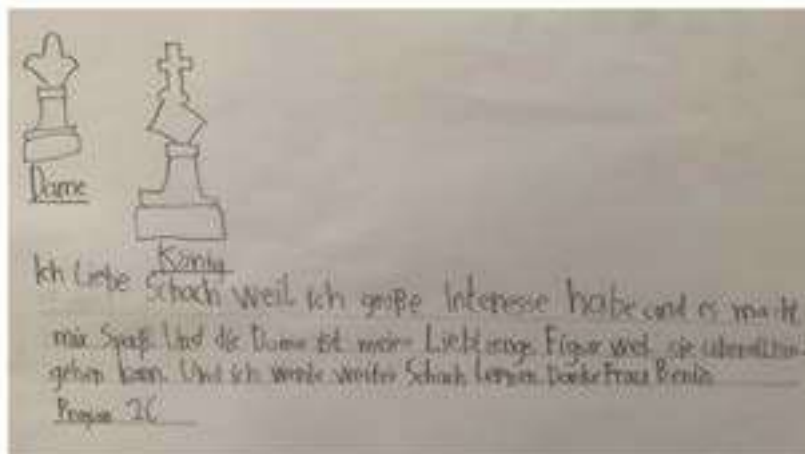 Dame
König
Ich Liebe Schach weil ich große Interesse habe und es macht
mir Spaß. Und die Dame ist meine Figur weil sie
gehen kann. Und ich werde weiter Schach lernen. Danke Frau
2C